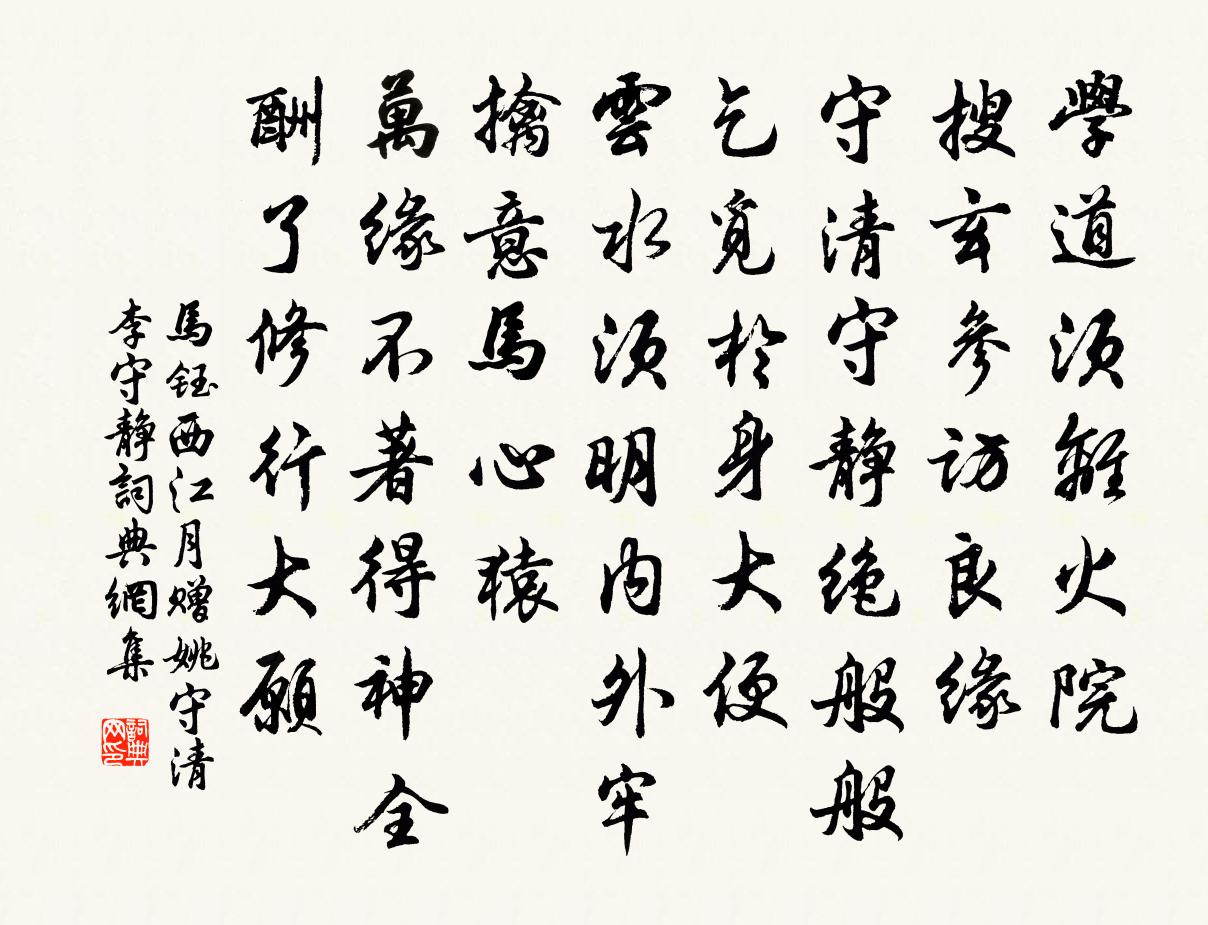 學道須離火院
搜玄參訪良緣
守清守靜絶般般
乞覓於身大便
雲水須明内外牢
擒意馬心猿
萬緣不著得神全
酬了修行大願
馬鈺西江月赠姚守清
李守靜詞典網集
詞典网印